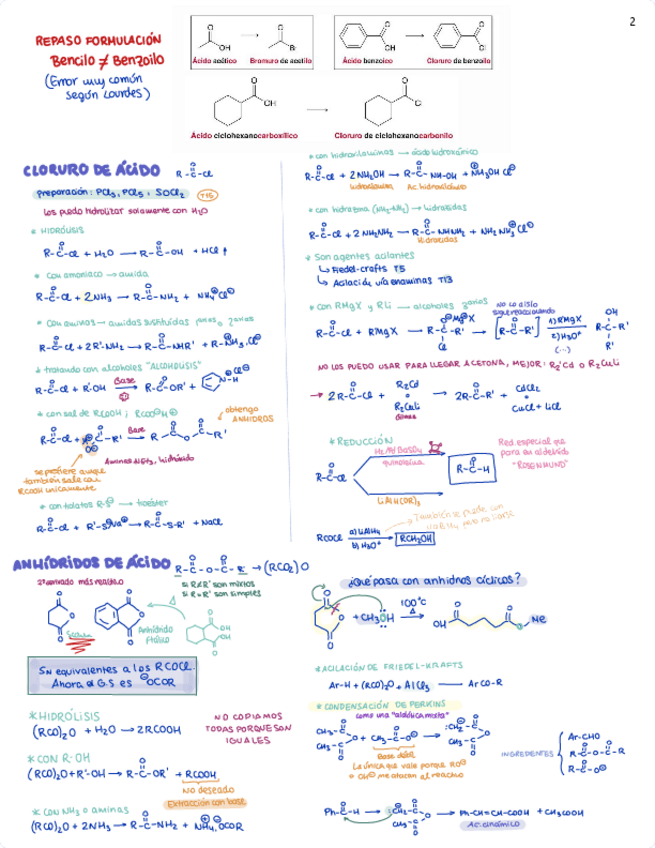 2
REPASO FORMULACIÓN
Bencilo ≠ Benzoilo
(Error muy común
según Lourdes)
OH
Br
Ácido acético
Bromuro de acetilo
OH
Cl
Ácido benzoico
Cloruro de benzoilo
OH
Cl
Ácido ciclohexanocarboxílico
Cloruro de ciclohexanocarbonilo
CLORURO DE ÁCIDO
R-C-Cl
preparación: PCl₃, PCl₅, SOCl₂
Los puedo hidrolizar solamente con H₂O
* HIDRÓLISIS
R-C-Cl + H₂O → R-C-OH + HCl ↑
* con amoniaco → amida
R-C-Cl + 2NH₃ → R-C-NH₂ + NH₄ Cl
* con aminas → amidas sustituidas
R-C-Cl + 2R'-NH₂ → R-C-NHR' + R-NH₃ Cl
* tratando con alcoholes "ALCOHÓLISIS"
R-C-Cl + R'OH
Base
R-C-OR' +
N-H
* con sal de RCOOH ;
obtengo
ANHIDROS
Base
Aminas
se prefiere aunque
también sale con
RCOOH únicamente
R-C-Cl + R'-S Na → R-C-S-R' + NaCl
* con hidroxilaminas → ácido hidroxámico
R-C-Cl + 2 NH₂OH → R-C-NH-OH + NH₃OH Cl
hidroxilamina
Ac. hidroxámico
* con hidrazina (NH₂-NH₂) → hidrazidas
R-C-Cl + 2 NH₂NH₂ → R-C-NHNH₂ + NH₂NH₃ Cl
Hidrazidas
* Son agentes acilantes
↳ Friedel-crafts T5
↳ Acilación vía enaminas T13
* con RMgX y RLi → alcoholes 3arios
No lo aíslo
sigue reaccionando
R-C-Cl + RMgX → R-C-R' → [R-C-R']
1) RMgX
2) H₃O⁺
(...)
OH
R-C-R'
R'
NO LOS PUEDO USAR PARA LLEGAR A CETONA, MEJOR: R₂'Cd o R₂CuLi
→ 2R-C-Cl +
R₂Cd
R₂CuLi
2R-C-R' +
CdCl₂
CuCl + LiCl
* REDUCCIÓN
R-C-Cl
H₂/Pd BaSO₄
quinoleína
R-C-H
Red. especial que
para en aldehído
"ROSENMUND"
LiAlH(OR)₃
RCOCl
a) LiAlH₄
b) H₃O⁺
RCH₂OH
También se puede con
ANHÍDRIDOS DE ÁCIDO
R-C-O-C-R → (RCO₂)O
2º derivado más reactivo
si R≠R' son mixtos
si R=R' son simples
Anhídrido
ftálico
OH
OH
Sn equivalentes a los RCOCl
Ahora el G.S es OCOR
* HIDRÓLISIS
(RCO)₂O + H₂O → 2RCOOH
NO COPIAMOS
TODAS PORQUE SON
IGUALES
* CON R-OH
(RCO)₂O + R'-OH → R-C-OR' + RCOOH
NO deseado
Extracción con base
* CON NH₃ O aminas
(RCO)₂O + 2NH₃ → R-C-NH₂ + NH₄ OCOR
¿Qué pasa con anhidros cíclicos?
+ CH₃OH
100°C
OH
Me
* ACILACIÓN DE FRIEDEL-KRAFTS
Ar-H + (RCO)₂O + AlCl₃ → Ar CO-R
* CONDENSACIÓN DE PERKINS
como una "aldólica mixta"
Base débil
La única que vale porque RO
o OH me atacan al reactivo
INGREDIENTES
Ar-CHO
R-C-O-C-R
R-C-O
Ph-C-H
Ph-CH=CH-COOH + CH₃COOH
Ac. cinámico